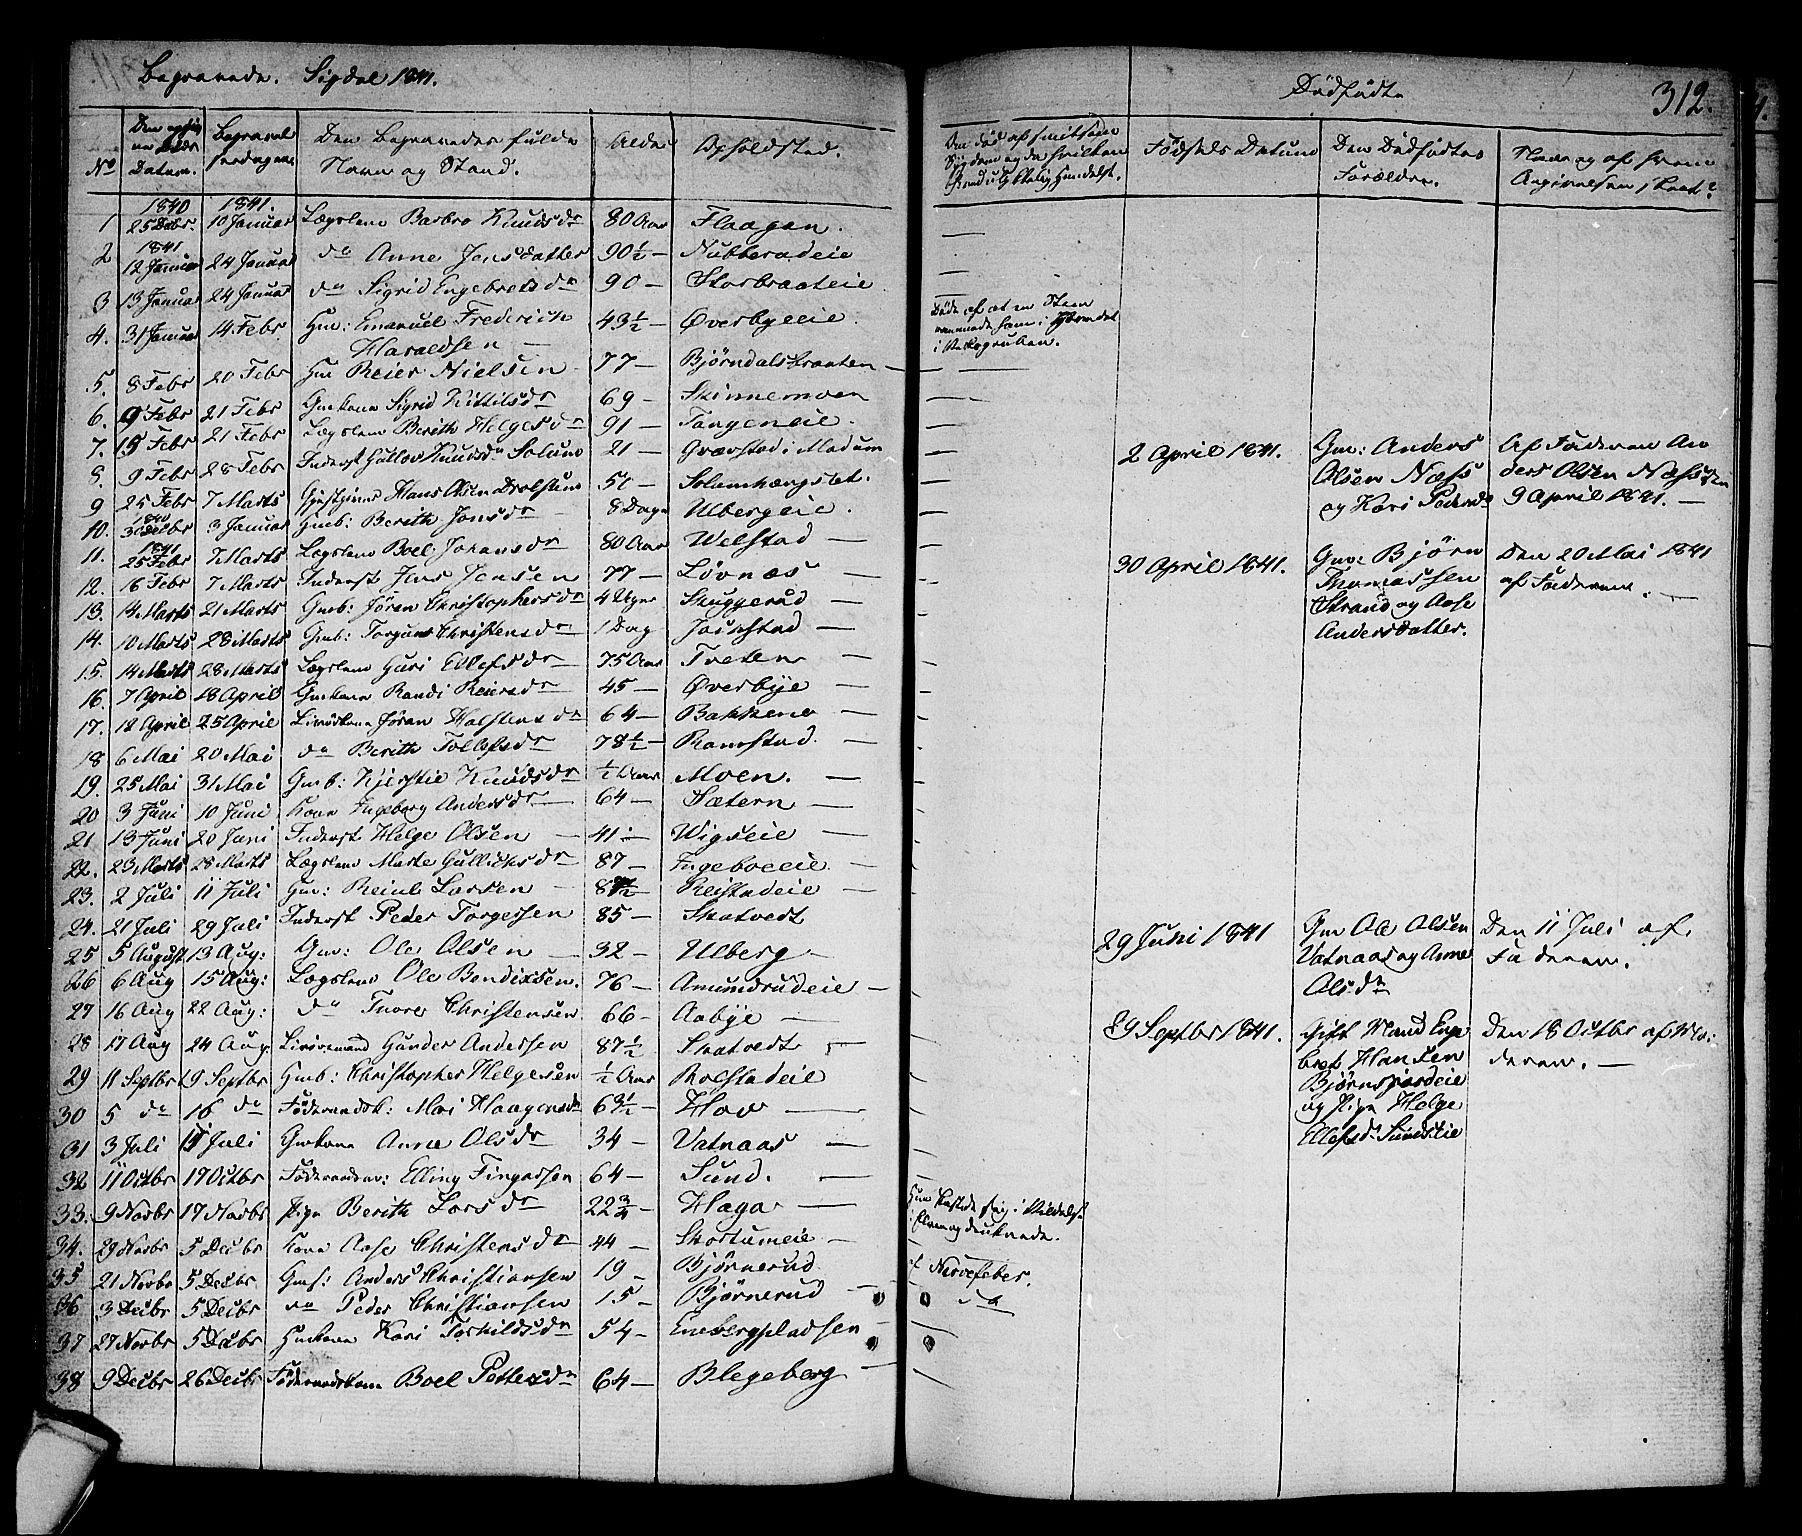 Begravede. Sigdal 1841.
No
Datum.
Begravel
sesdagene
Den Begravedes fulde
Navn og Stand.
Alder
Opholdsted.
1 1840 25 Decbr. 1841. 10 Januar Lægslem Barbro Knudsdr 80 Aar Flaagan.
2 1841 12 Januar 24 Januar do Anne Jensdatter 90½ — Nubberudeie
3 13 Januar 24 Januar do Sigrid Engebretsdr 90 — Storbraateie
4. 31 Januar 14 Febr. Gm: Emanuel Frederich
Haraldsen — 43½ — Øverbyeeie
5. 8 Febr 20 Febr Gm Reier Nielsen 77 — Bjørndalsbraaten —
6. 9 Febr 21 Febr Gmkone Sigrid Kittilsdr 69 — Skinnemoen
7. 15 Febr 21 Febr Lægslem Berith Helgesdr 91 — Tangeneie.
8. 9 Febr 28 Febr Inderst Gullov Knudsdr Solum 21 — Gravstad i Modum
9 25 Febr 7 Marts Hans Olsen 50 — Solumhængslet.
10. 1840 30 Decbr 3 Januar Gmb: Berith Jonsdr 8 Dage Ulbergeie.
11. 1841 25 Febr 7 Marts Lægslem Boel Johansdr 80 Aar Welstad —
12. 16 Febr 7 Marts Inderst Jens Jensen 77 — Løvnæs —
13. 14 Marts 21 Marts Gmb: Jøren Christophersdr 4 Uger Skuggerud —
14. 10 Marts 28 Marts Gmb: Torgun Christensdr 1 Dag Jokstad —
15. 14 Marts 28 Marts Lægslem Guri Ellefsdr 75 Aar Tveten —
16. 7 April 18 April Gmkone Randi Reiersdr 45 — Øverbye —
17. 18 April 25 April Jøran Holstensdr 64 — Bakkene —
18 6 Mai 20 Mai do Berith Tollefsdr 78½ — Ramstad. —
19. 25 Mai 31 Mai Gmb: Kjerstie Knudsdr ½ Aar Moen. —
20 3 Juni 10 Juni Kone Ingeborg Andersdr. — 64 — Sætern —
21 13 Juni 20 Juni Inderst Helge Olsen — 41 — Wigseie —
22. 23 Marts 28 Marts Lægslem Marte Gullichsdr 87 — Ingeboeeie.
23. 2 Juli 11 Juli Gm: Reinl Larsen — Reistadeie —
24. 21 Juli 29 Juli Inderst Peder Torgersen 85 — Skatvedt
25 5 August 13 Aug: Gm: Ole Olsen — 32 — Ulberg —
26 6 Aug 15 Aug: Lægslem Ole Bendixsen. 76 — Amundrudeie —
27 16 Aug 22 Aug: do Tuore Christensen 66 — Aabye —
28 17 Aug 24 Aug. Gunder Andersen 87½ — Skatvedt —
29 11 Septbr 19 Septbr Gmb: Christopher Helgesen ½ Aar Rolstadeie
30 5 do 16 do Føderaadsk: Mari Haagensdr 63½ — Hov —
31 3 Juli 11 Juli Gmkone Anne Olsdr 34 — Vatnaas —
32 11 Octbr 17 Octbr Føderaadsm: Elling Fingarsen 64 — Sund. —
33. 9 Novbr 17 Novbr Pige Berith Larsdr 22¾ — Haga —
34. 29 Novbr 5 Decbr Kone Aase Christensdr 44 — Skartumeie —
35 21 Novbr 5 Decbr Gms: Anders Christiansen 19 — Bjørnerud
36 3 Decbr 5 Decbr do Peder Christiansen 15 — Bjørnerud —
37 27 Novbr 5 Decbr Gmkone Kari Torkildsdr 54 — Enebergpladsen —
38 9 Decbr 26 Decbr Føderaadskone Boel Pettersdr 64 — Blegeberg —
Dødfødte
312.
Om død af smitsom
Sygdom og da hvilken
Fødsels Datum
Den Dødfødtes
Forældre.
Naar og af hvem
Angivelsen skeet?
Døde af at en Steen
rammede ham i Hovedet
2 April 1841.
Gm: Anders
Olsen Næss
og Kari Pedersdr
Af Faderen An
ders Olsen Næss den
9 April 1841. —
30 April 1841.
Gm: Bjørn
Thomassen
Strand og Aase
Andersdatter.
Den 20 Mai 1841
af Faderen. —
29 Juni 1841
Gm Ole Olsen
Vatnaas og Anne
Olsdr
Den 11 Juli af
Faderen.
29 Septbr 1841.
Gift Mand Enge
bret Hansen
Bjørnsjordeie
og Pige Helge
Ellefsdr Sundseie
Den 18 Octbr af Mo:
deren. —
Hun kastede sig i
Elven og druknede.
af Nervefeber.
do